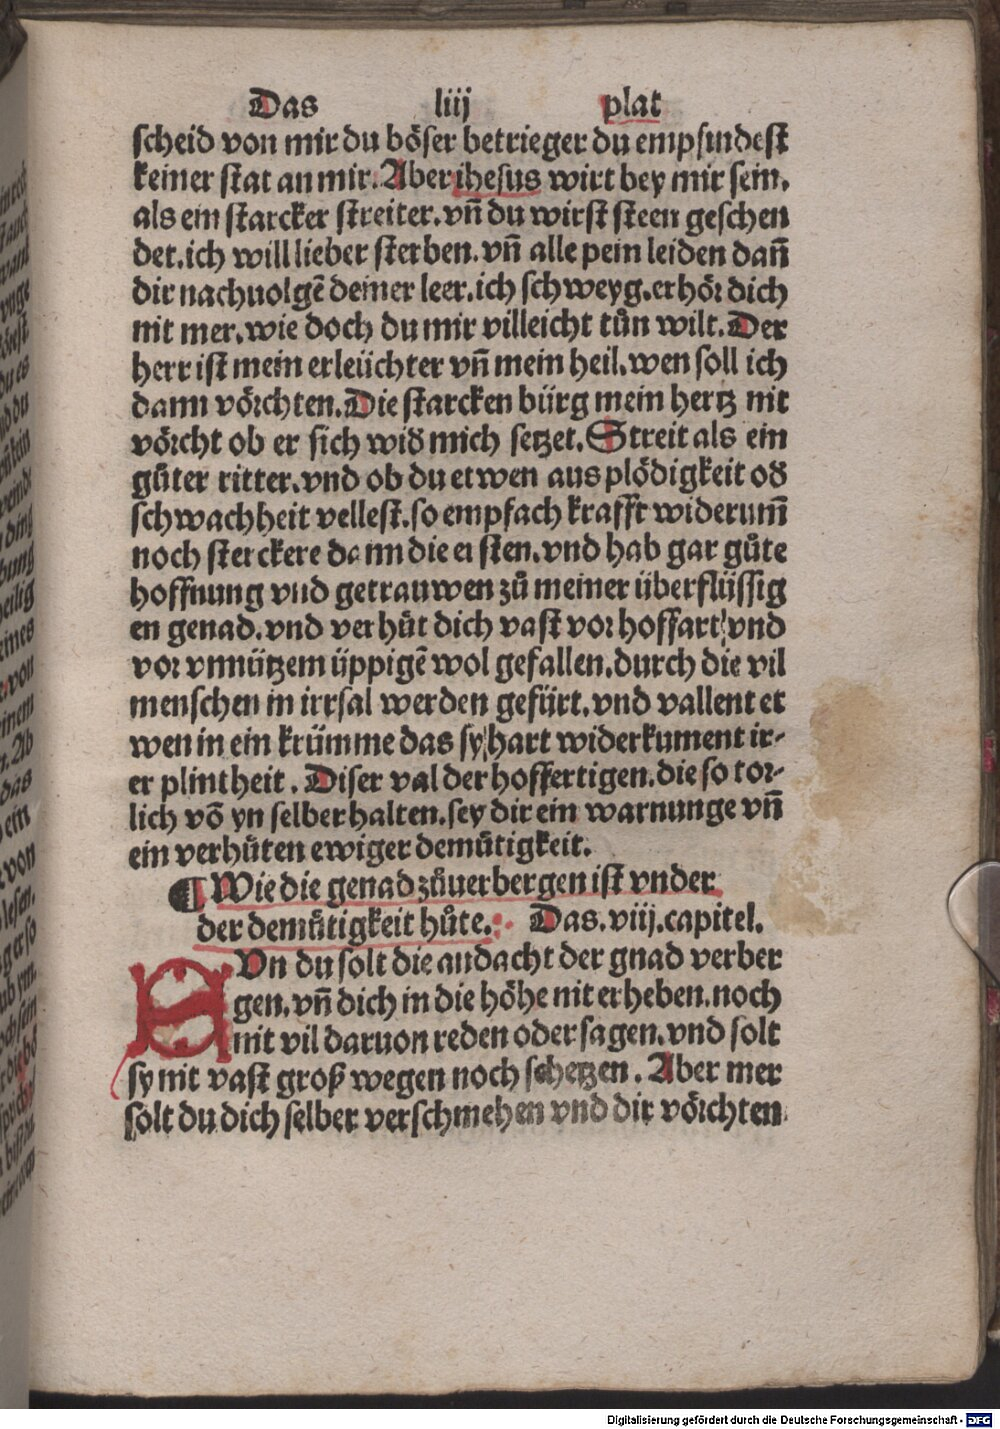 Das liij plat
scheid von mir du böser betrieger du empfindest
keiner stat an mir. Aber ihesus wirt bey mir sein.
als ein starcker streiter. vñ du wirst steen geschen
det. ich will lieber sterben. vñ alle pein leiden dañ
dir nachuolgē deiner leer. ich schweyg. erhör dich
nit mer. wie doch du mir villeicht tůn wilt. Der
herr ist mein erleüchter vñ mein heil. wen soll ich
dann vörchten. Die starcken bürg mein hertz nit
vörcht ob er sich wiď mich setzet. Streit als ein
gůter ritter. vnd ob du etwen aus plödigkeit oď
schwachheit vellest. so empfach krafft widerum̄
noch sterckere dann die ersten. vnd hab gar gůte
hoffnung vnd getrauwen zů meiner überflüssig
en genad. vnd verhůt dich vast vor hoffart vnd
vor vnnützem üppigē wol gefallen. durch die vil
menschen in irrsal werden gefürt. vnd vallent et
wen in ein krümme das sy hart widerkument ir-
er plintheit. Diser val der hoffertigen. die so tor-
lich vō yn selber halten. sey dir ein warnunge vñ
ein verhůten ewiger demůtigkeit.
¶ Wie die genad zůuerbergen ist vnder
der demůtigkeit hůte. Das. viij. capitel.
SUn du solt die andacht der gnad verber
gen. vñ dich in die höhe nit erheben. noch
nit vil daruon reden oder sagen. vnd solt
sy nit vast groß wegen noch schetzen. Aber mer
solt du dich selber verschmehen vnd dir vörchten
Digitalisierung gefördert durch die Deutsche Forschungsgemeinschaft - DFG